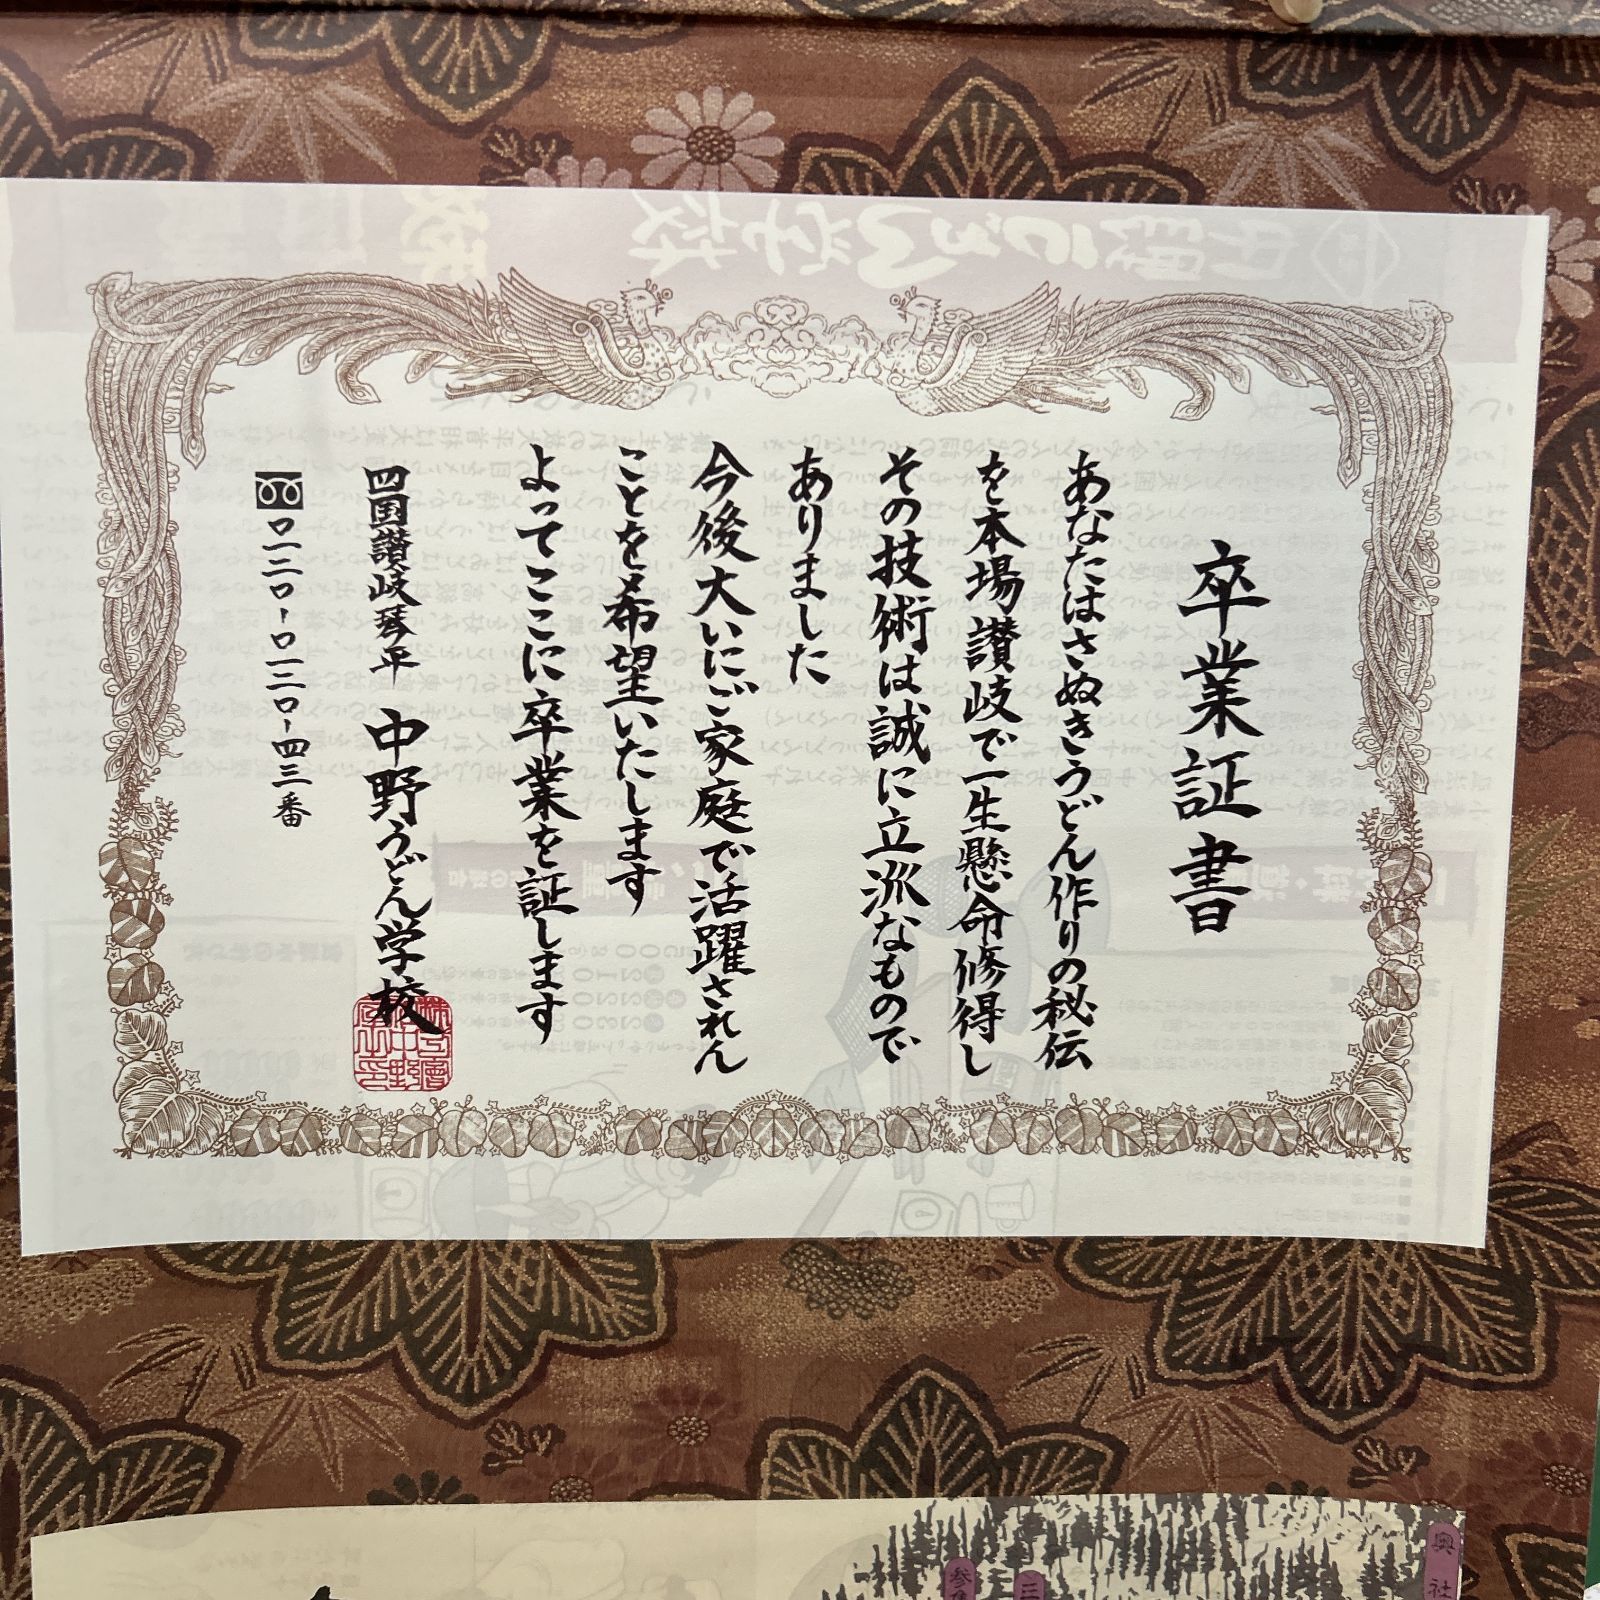 卒業証書
あなたはさぬきうどん作りの秘伝
を本場讃岐で一生懸命修得し
その技術は誠に立派なもので
ありました
今後大いにご家庭で活躍されん
ことを希望いたします
よってここに卒業を証します
四国讃岐琴平 中野うどん学校
〇一二〇-〇一二〇-四三番
興社